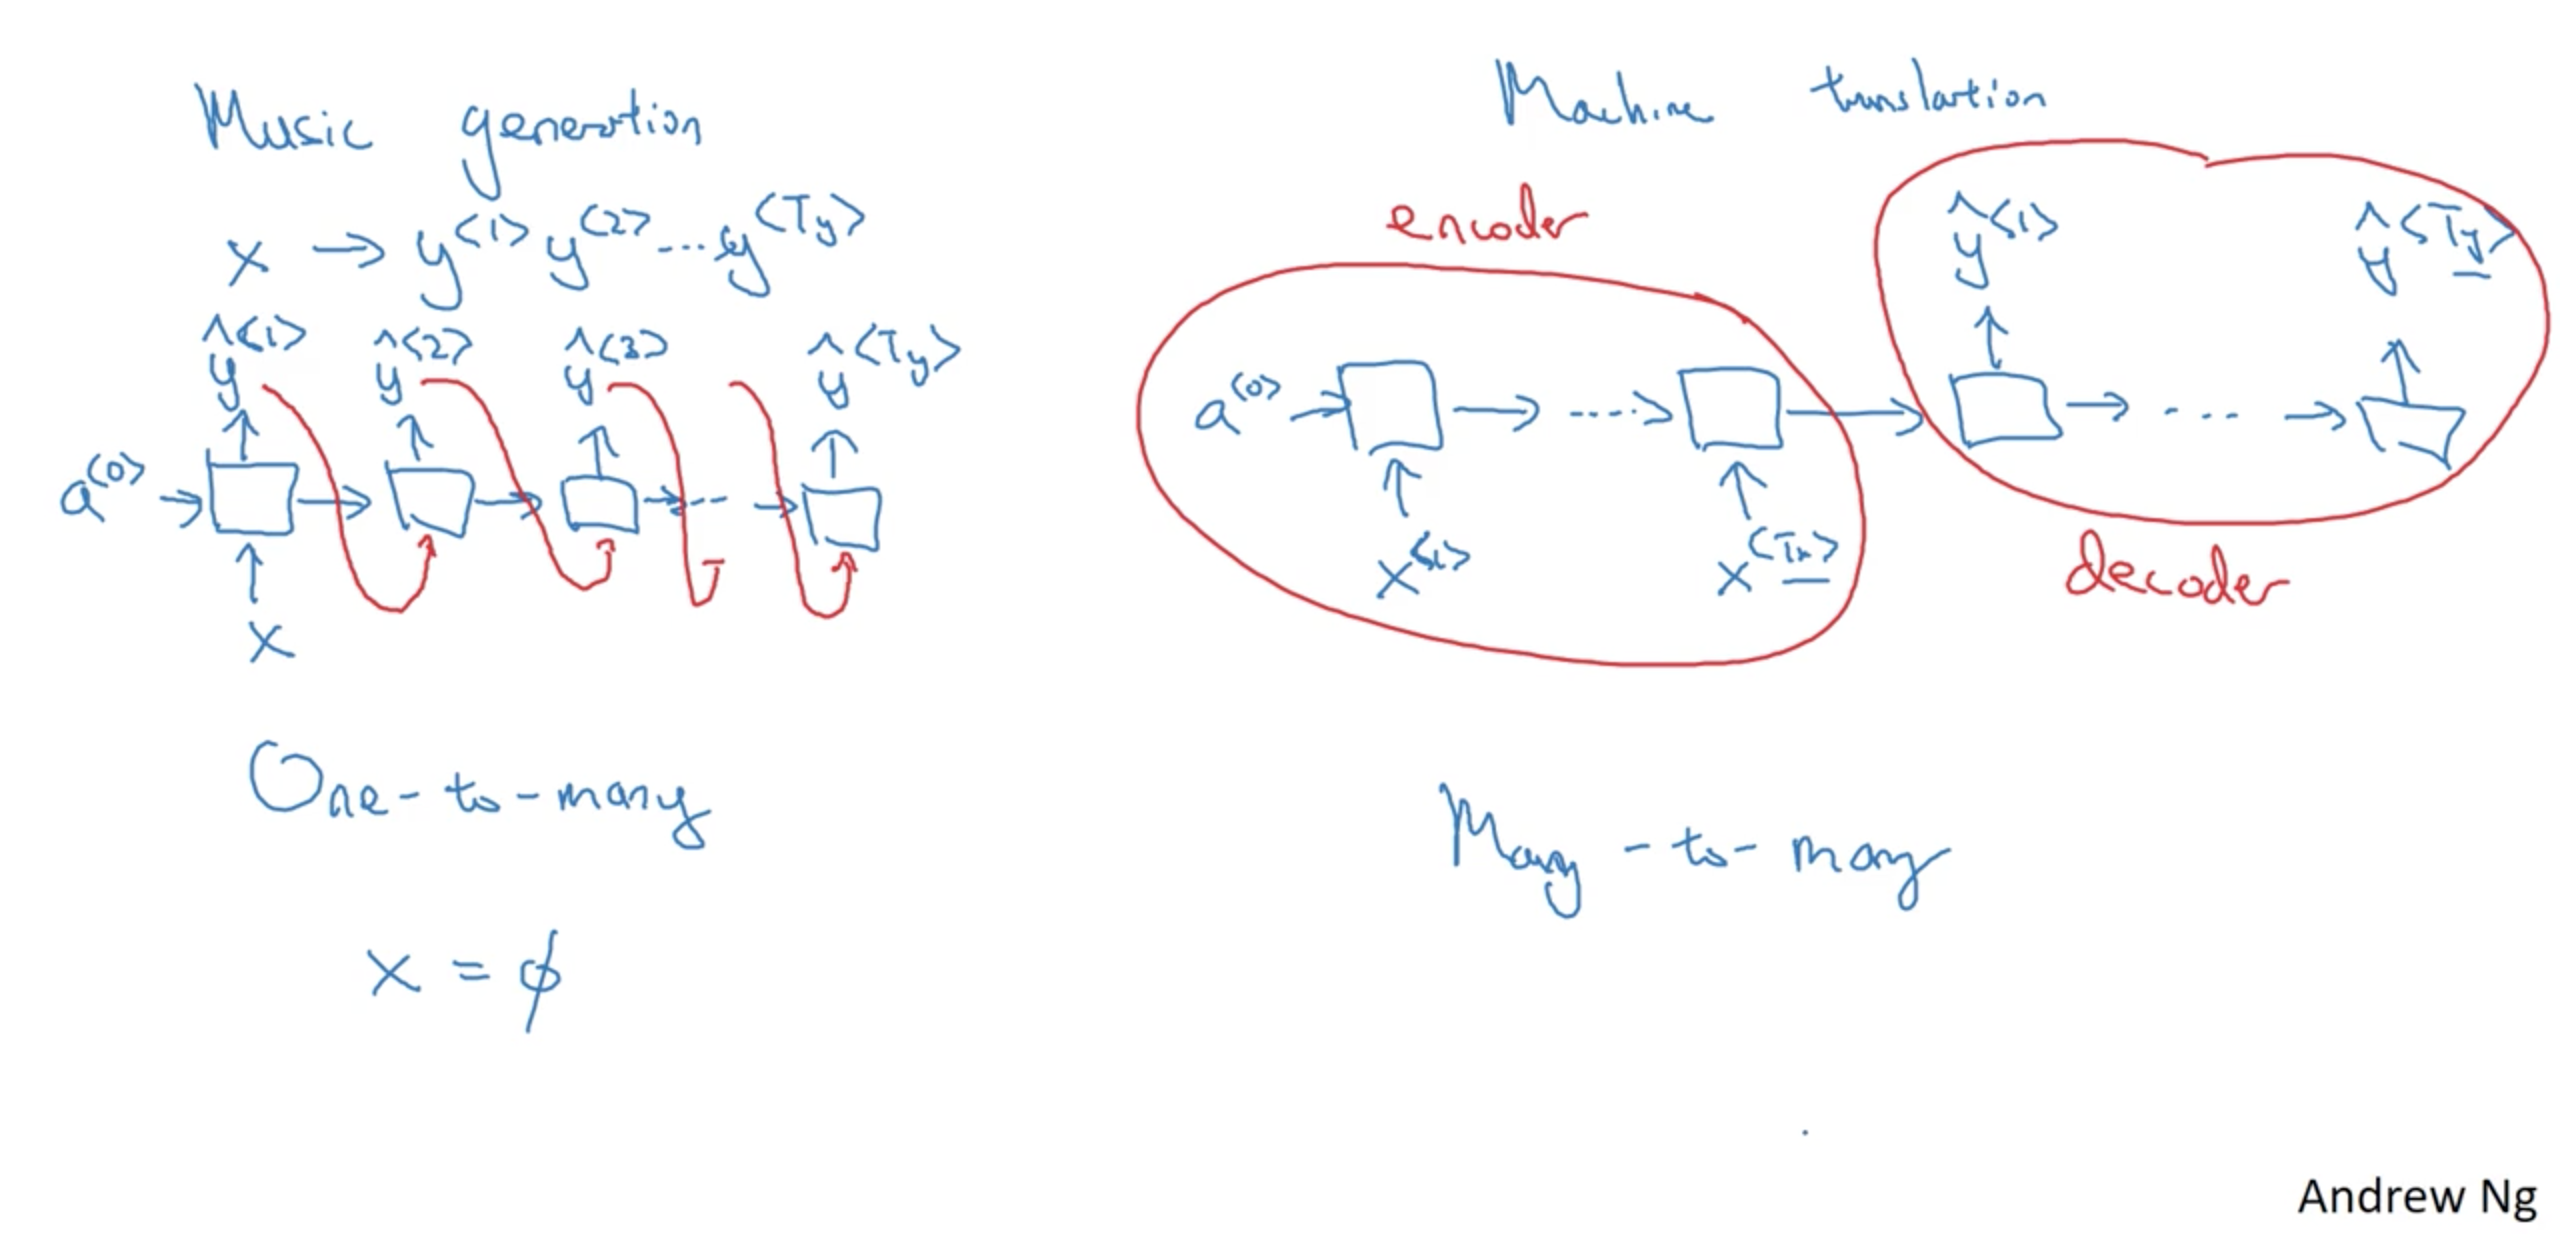 Music generation
x → y<1> y<2> ... y<Ty>
ŷ<1> ŷ<2> ŷ<3> ŷ<Ty>
a<0>
x
One-to-many
x = ∅
Machine translation
encoder
ŷ<1> ŷ<Ty>
a<0>
x<1> x<Tx>
decoder
Many-to-many
Andrew Ng